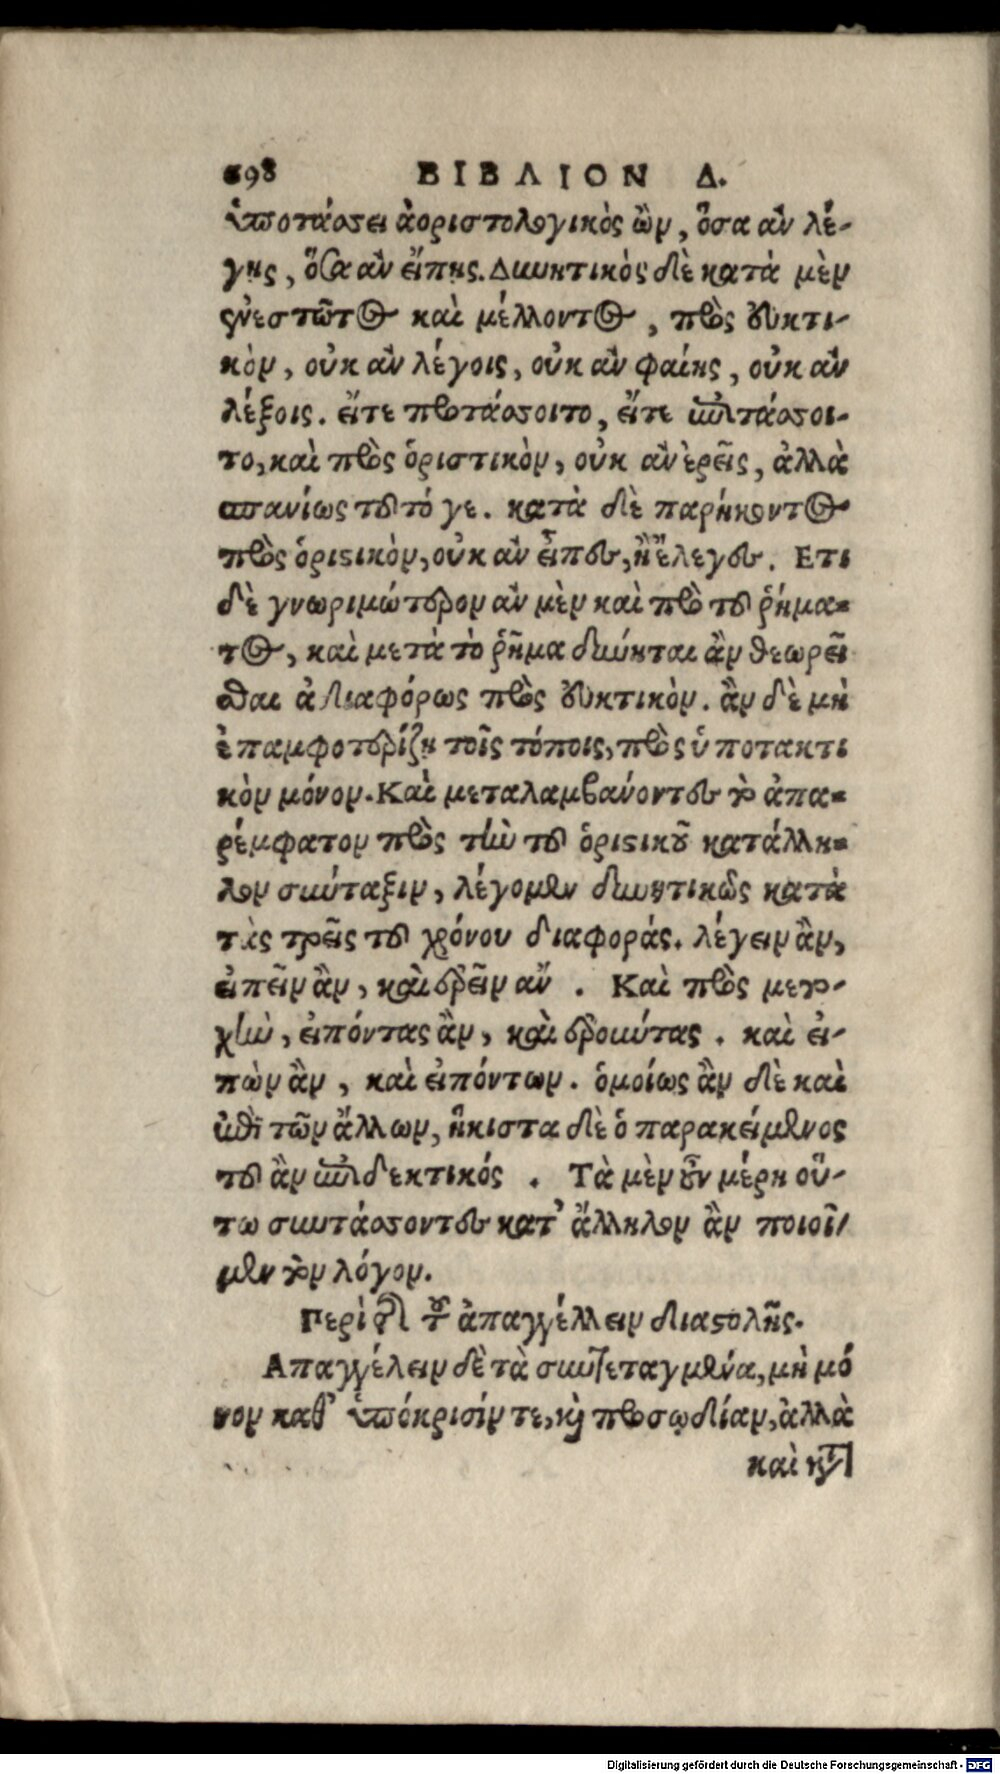 698 ΒΙΒΛΙΟΝ Δ.
ὑποτάσσει ἀοριστολογικὸς ὢν, ὅσα αν λέ-
γῃς, ὅσα αν εἴπῃς. Δυνητικὸς δὲ κατὰ μὲν
ἐνεστῶτος καὶ μέλλοντος, πρὸς εὐκτι-
κὸν, οὐκ αν λέγοις, οὐκ αν φαίης, οὐκ αν
λέξοις. εἴτε προτάσσοιτο, εἴτε ἐπιτάσσοι-
το, καὶ πρὸς ὁριστικὸν, οὐκ αν ἐρεῖς, ἀλλὰ
σπανίως τοῦτό γε. κατὰ δὲ παρῄκοντος
πρὸς ὁριστικὸν, οὐκ αν εἶπες, ἢ ἔλεγες. Ετι
δὲ γνωριμώτερον αν μὲν καὶ πρὸ τοῦ ῥήμα-
τος, καὶ μετὰ τὸ ῥῆμα δύνηται ἂν θεωρεῖ
σθαι ἀδιαφόρως πρὸς εὐκτικὸν. ἂν δὲ μὴ
ἐπαμφοτερίζῃ τοῖς τόποις, πρὸς ὑποτακτι
κὸν μόνον. Καὶ μεταλαμβάνοντες τὸ ἀπα-
ρέμφατον πρὸς τὴν τοῦ ὁριστικοῦ κατάλλη-
λον σύνταξιν, λέγομεν δυνητικῶς κατὰ
τὰς τρεῖς τοῦ χρόνου διαφοράς. λέγειν ἂν,
εἰπεῖν ἂν, καὶ ἐρεῖν αν. Καὶ πρὸς μετο-
χὴν, εἰπόντας ἂν, καὶ ἐροῦντας. καὶ εἰ-
πὼν ἂν, καὶ εἰπόντων. ὁμοίως ἂν δὲ καὶ
ἐπὶ τῶν ἄλλων, ἥκιστα δὲ ὁ παρακείμενος
τοῦ ἂν ἐπιδεκτικός. Τὰ μὲν οὖν μέρη οὕ-
τω συντάσσοντες κατ' ἄλληλον ἂν ποιοῖ-
μεν τὸν λόγον.
Περὶ τῆς τοῦ ἀπαγγέλλειν διαστολῆς.
Απαγγέλειν δὲ τὰ συντεταγμένα, μὴ μό
νον καθ' ὑπόκρισίν τε, καὶ προσῳδίαν, ἀλλὰ
καὶ κατὰ
Digitalisierung gefördert durch die Deutsche Forschungsgemeinschaft - DFG